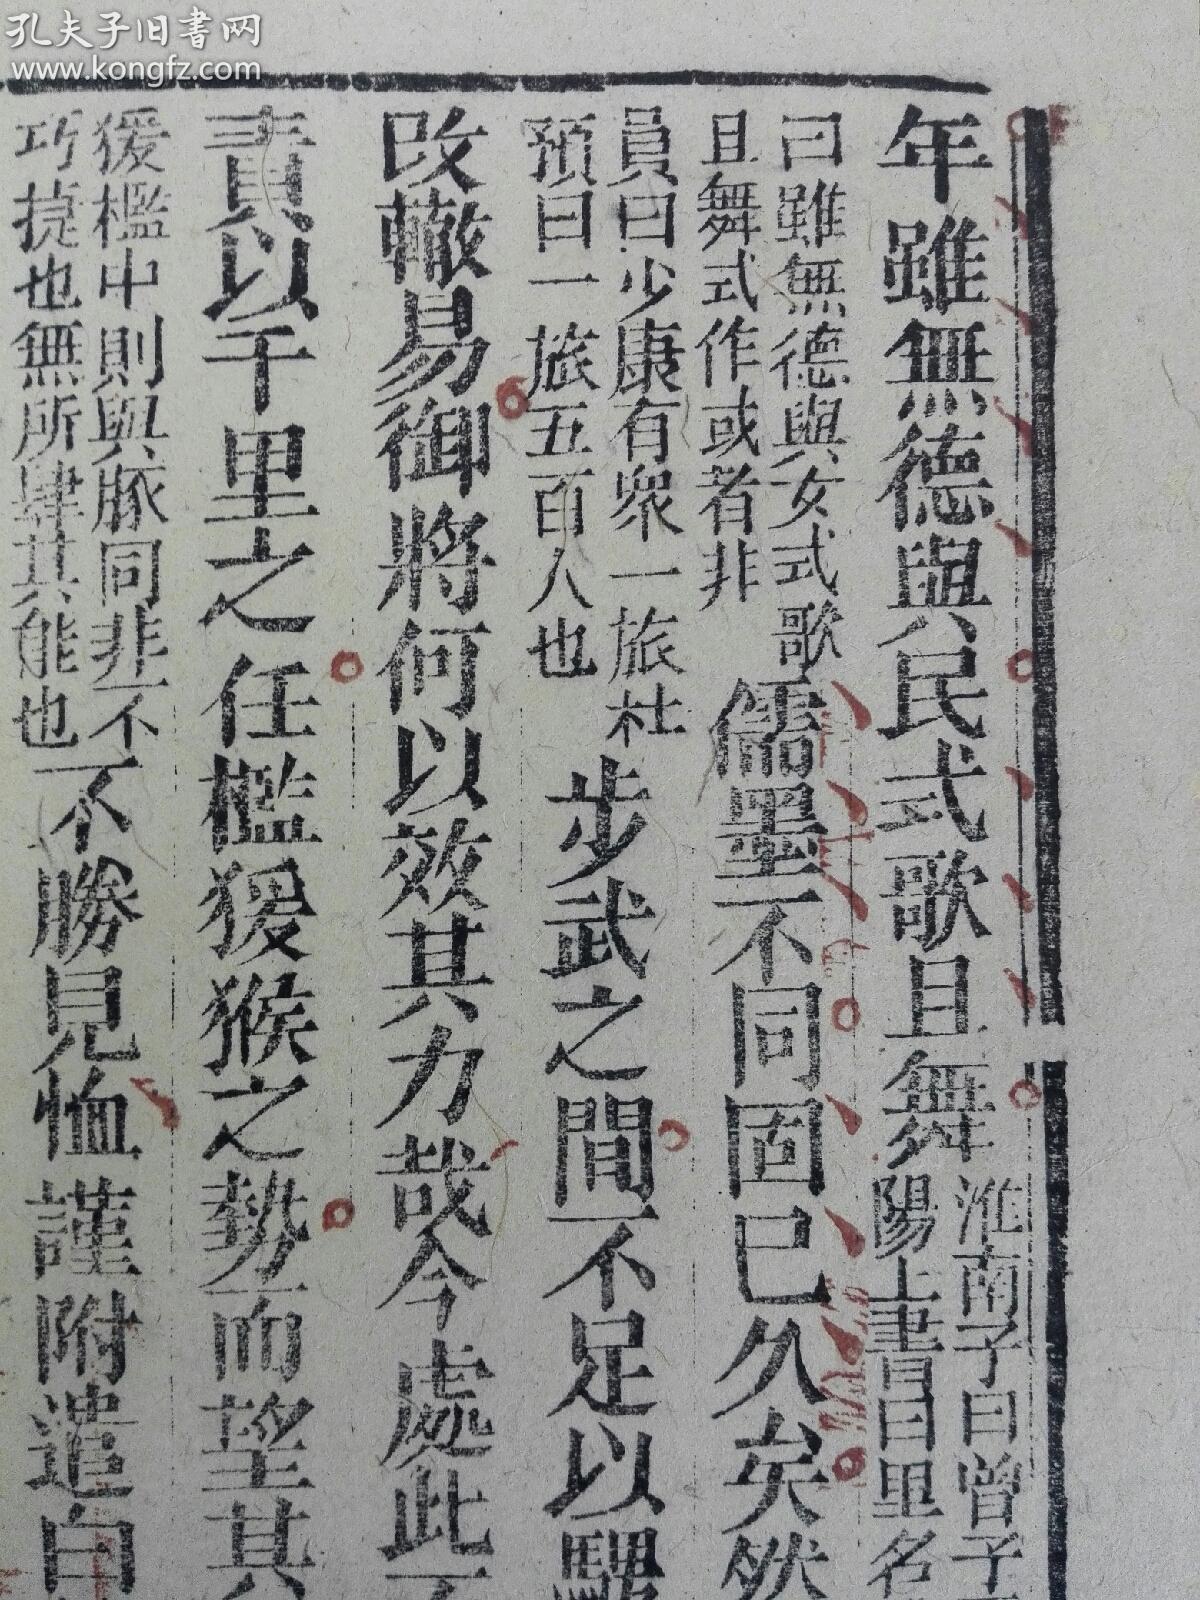 孔夫子旧書网
www.kongfz.com
年雖無德與民式歌且舞
淮南子曰曾子
陽上書曰里名
曰雖無德與女式歌
且舞式作或者非
儒墨不同固已久矣然
員曰少康有衆一旅杜
預曰一旅五百人也
步武之間不足以騁
改轍易御將何以效其力哉今處此
責以千里之任檻猨猴之勢而望其
猨檻中則與豚同非不
巧捷也無所肆其能也
不勝見恤謹附遣白